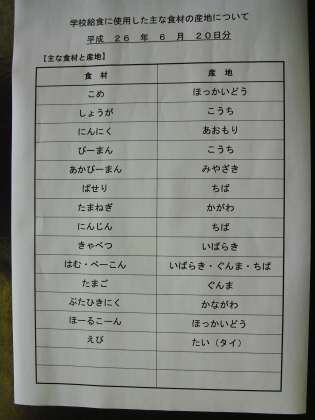 学校給食に使用した主な食材の産地について
平成 26 年 6 月 20日分
【主な食材と産地】
食 材 産 地
こめ ほっかいどう
しょうが こうち
にんにく あおもり
ぴーまん こうち
あかぴーまん みやざき
ぱせり ちば
たまねぎ かがわ
にんじん ちば
きゃべつ いばらき
はむ・べーこん いばらき・ぐんま・ちば
たまご ぐんま
ぶたひきにく かながわ
ほーるこーん ほっかいどう
えび たい（タイ）